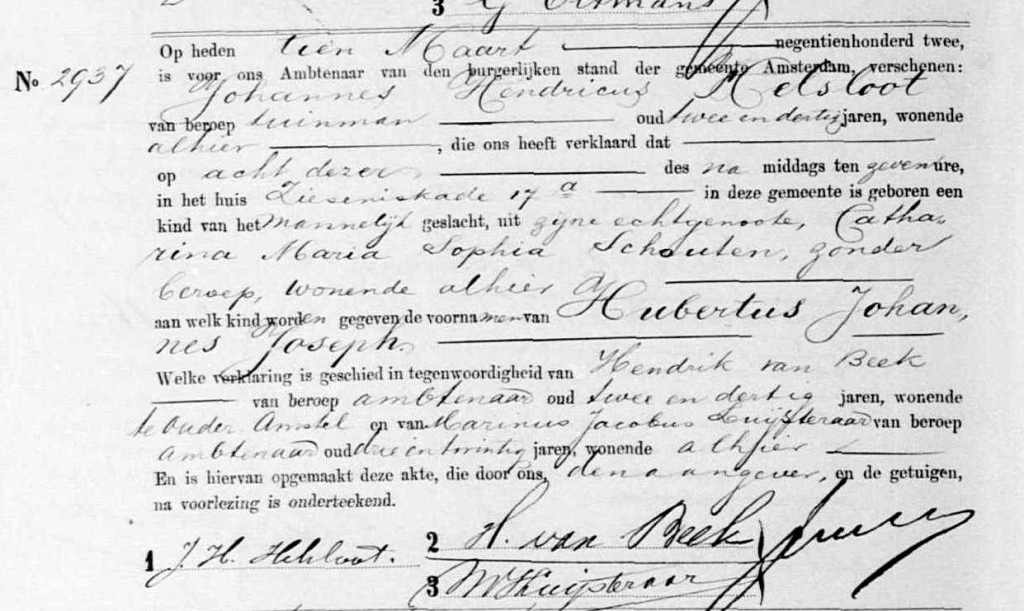 3
Op heden tien Maart negentienhonderd twee,
No 2937 is voor ons Ambtenaar van den burgerlijken stand der gemeente Amsterdam, verschenen:
Johannes Hendricus Helsloot
van beroep tuinman oud twee en dertig jaren, wonende
alhier, die ons heeft verklaard dat
op acht dezer des na middags ten zeven ure,
in het huis Zieseniskade 17 a in deze gemeente is geboren een
kind van het mannelijk geslacht, uit zijne echtgenoote, Catha-
rina Maria Sophia Schouten, zonder
beroep, wonende alhier
aan welk kind worden gegeven de voornamen van Hubertus Johan,
nes Joseph.
Welke verklaring is geschied in tegenwoordigheid van Hendrik van Beek
van beroep ambtenaar oud twee en dertig jaren, wonende
te Ouder Amstel en van Marinus Jacobus Kuijsteraar van beroep
ambtenaar oud drie en twintig jaren, wonende alhier
En is hiervan opgemaakt deze akte, die door ons, den aangever, en de getuigen,
na voorlezing is onderteekend.
1 J. H. Helsloot. 2 H. van Beek
3 M Kuijsteraar